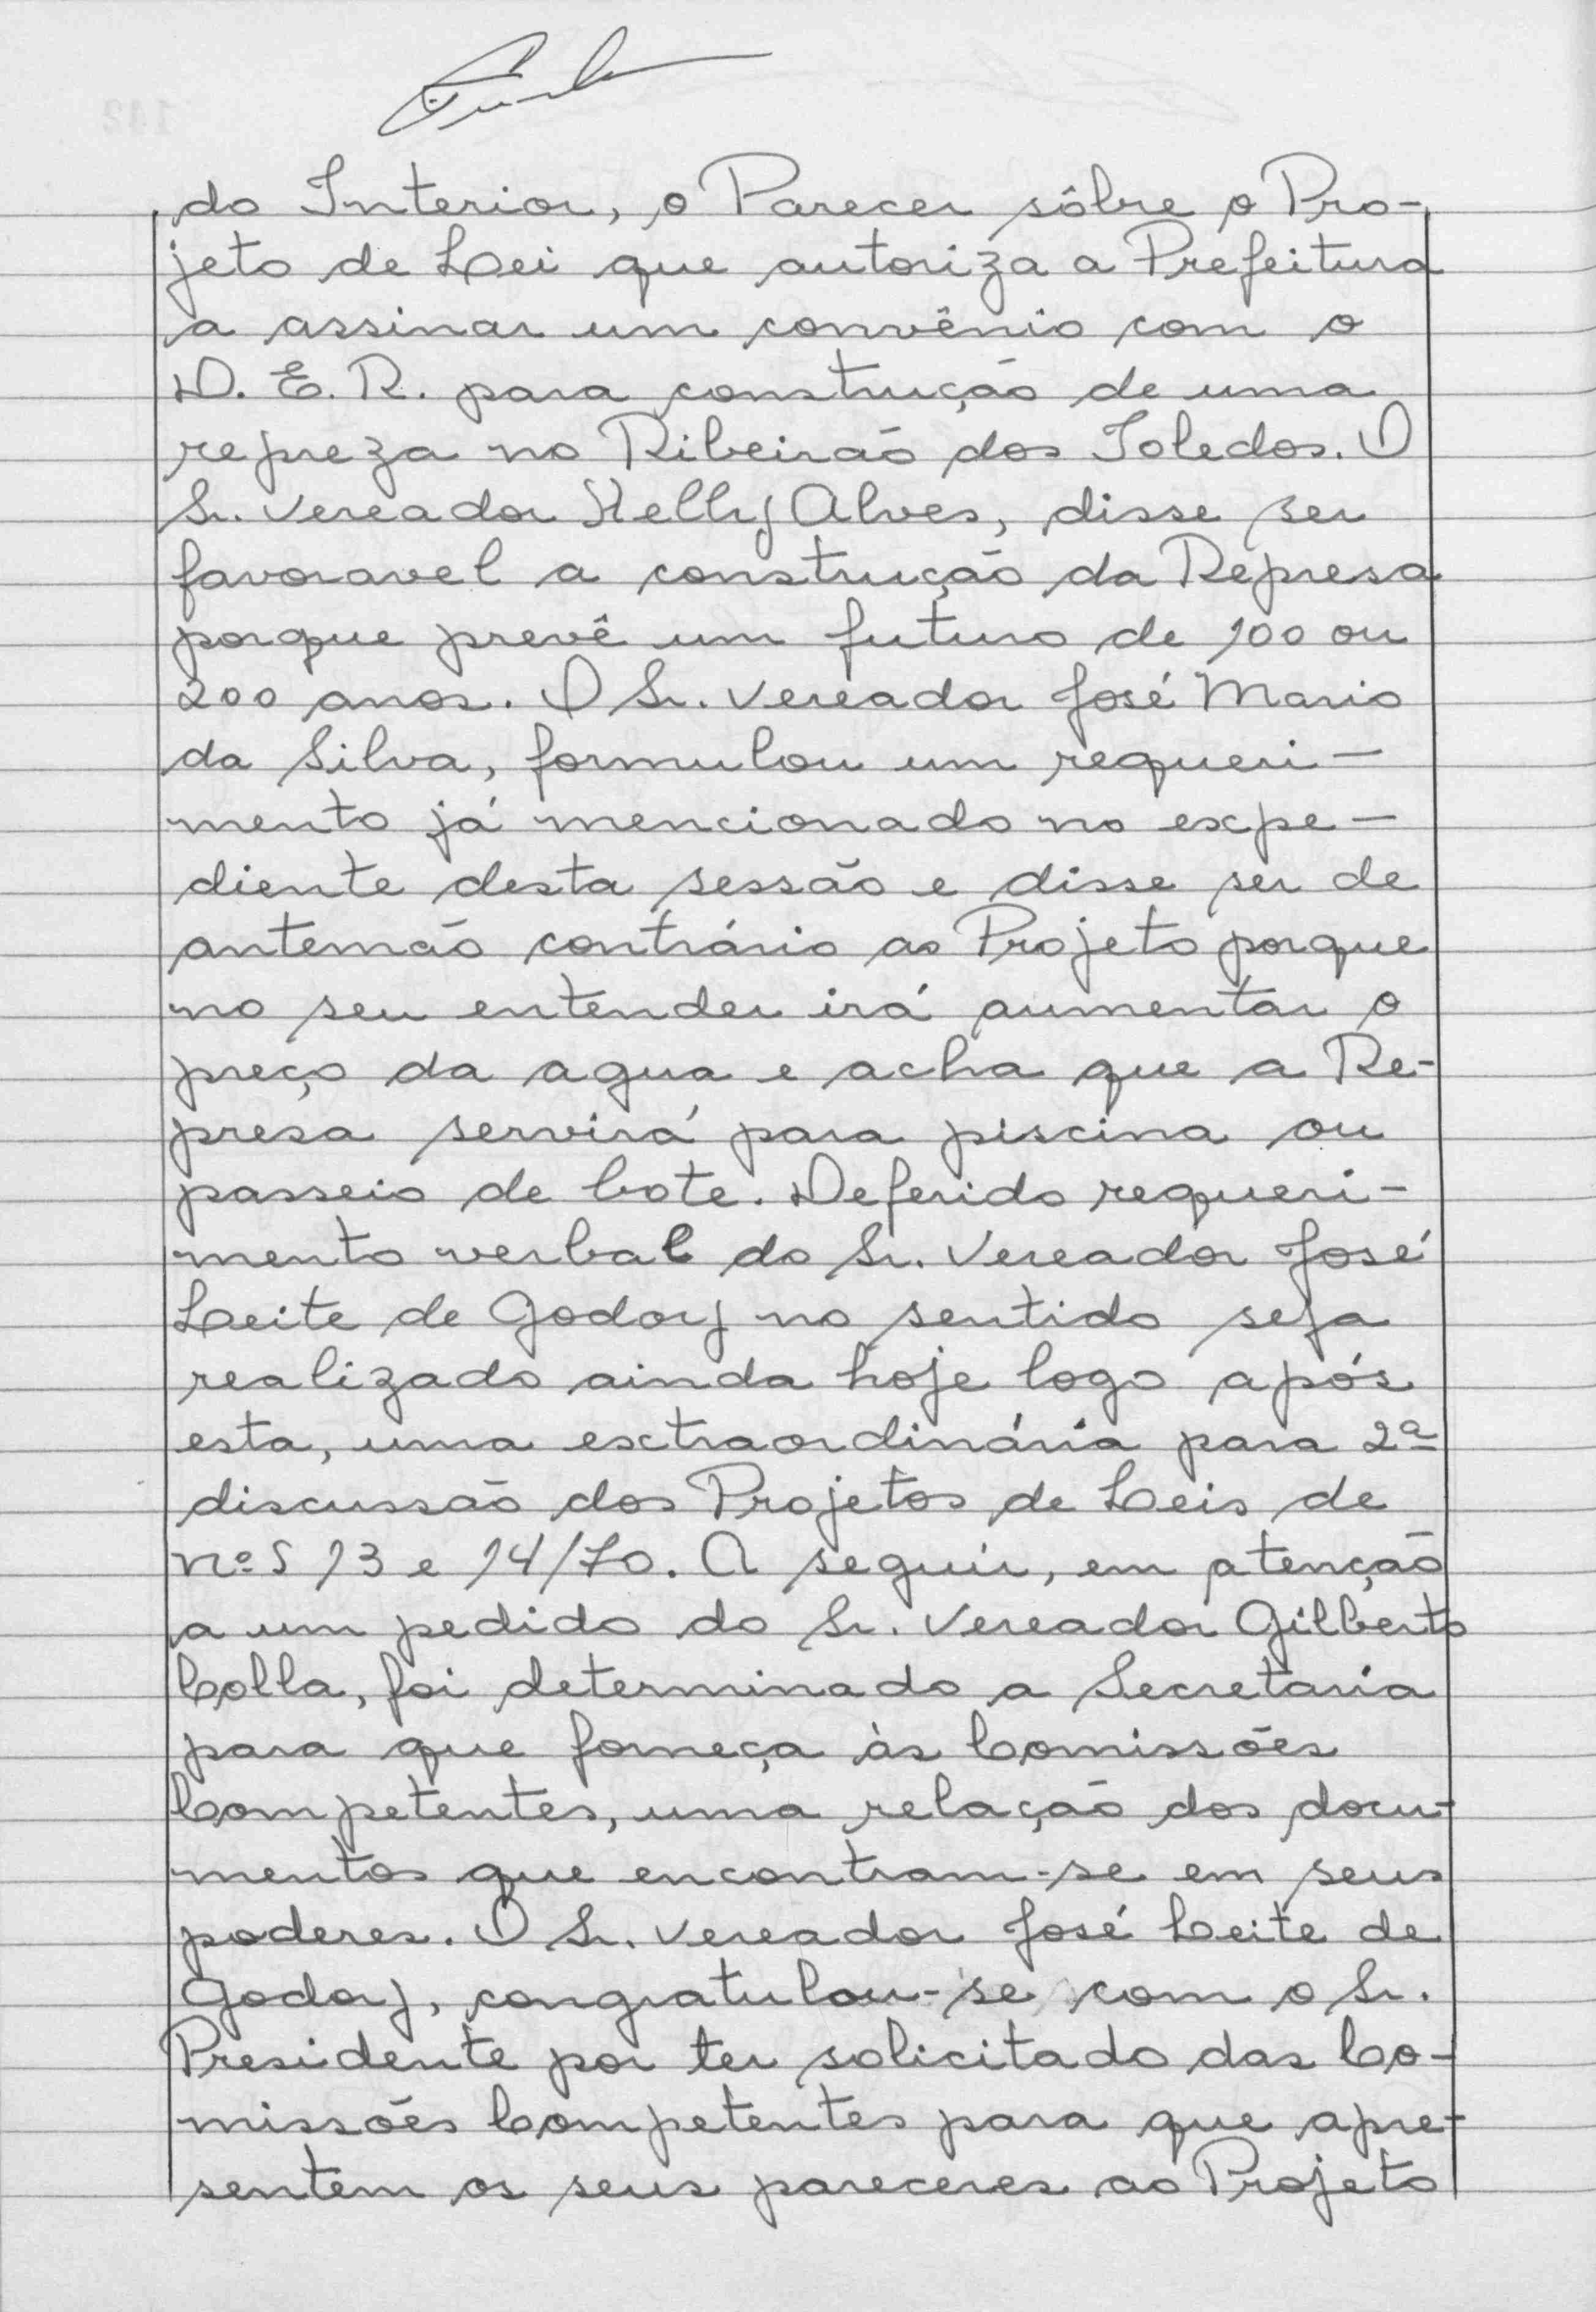 do Interior, o Parecer sôbre o Pro-
jeto de Lei que autoriza a Prefeitura
a assinar um convênio com o
D. E. R. para construção de uma
repreza no Ribeirão dos Toledos. O
Sr. Vereador Kelly Alves, disse ser
favoravel a construção da Represa
porque prevê um futuro de 100 ou
200 anos. O Sr. Vereador José Mario
da Silva, formulou um requeri-
mento já mencionado no expe-
diente desta sessão e disse ser de
antemão contrário ao Projeto porque
no seu entender irá aumentar o
preço da agua e acha que a Re-
presa servirá para piscina ou
passeio de bote. Deferido requeri-
mento verbal do Sr. Vereador José
Leite de Godoy no sentido seja
realizado ainda hoje logo após
esta, uma extraordinária para 2ª
discussão dos Projetos de Leis de
nºs 13 e 14/70. A seguir, em atenção
a um pedido do Sr. Vereador Gilberto
Colla, foi determinado a Secretaria
para que forneça às Comissões
Competentes, uma relação dos docu-
mentos que encontram-se em seus
poderes. O Sr. Vereador José Leite de
Godoy, congratulou-se com o Sr.
Presidente por ter solicitado das Co-
missões Competentes para que apre-
sentem os seus pareceres ao Projeto